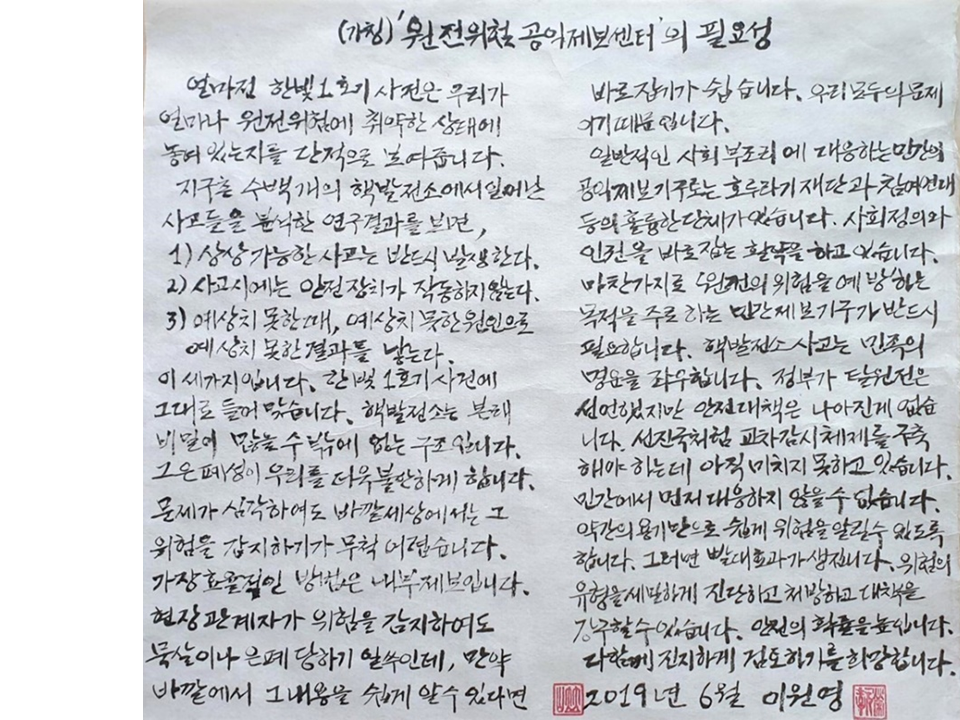 (가칭) '원전위험 공익제보센터'의 필요성
얼마전 한빛1호기 사건은 우리가
얼마나 원전위험에 취약한 상태에
놓여 있는지를 단적으로 보여줍니다.
지구촌 수백개의 핵발전소에서 일어난
사고들을 분석한 연구결과를 보면,
1) 상상 가능한 사고는 반드시 발생한다.
2) 사고시에는 안전장치가 작동하지 않는다.
3) 예상치 못한 때, 예상치 못한 원인으로
예상치 못한 결과를 낳는다.
이 세가지입니다. 한빛 1호기 사건에
그대로 들어 맞습니다. 핵발전소는 본래
비밀이 많을 수 밖에 없는 구조입니다.
그 은폐성이 우리를 더욱 불안하게 합니다.
문제가 심각하여도 바깥세상에서는 그
위험을 감지하기가 무척 어렵습니다.
가장 효율적인 방법은 내부제보입니다.
현장 관계자가 위험을 감지하여도
묵살이나 은폐 당하기 일쑤인데, 만약
바깥에서 그 내용을 쉽게 알 수 있다면
바로 잡기가 쉽습니다. 우리 모두의 문제
이기 때문입니다.
일반적인 사회부조리에 대응하는 민간의
공익제보기구로는 호루라기 재단과 참여연대
등의 훌륭한 단체가 있습니다. 사회정의와
인권을 바로 잡는 활약을 하고 있습니다.
마찬가지로 원전의 위험을 예방하는
목적을 주로 하는 민간제보기구가 반드시
필요합니다. 핵발전소 사고는 민족의
명운을 좌우합니다. 정부가 탈원전은
선언했지만 안전대책은 나아진게 없습
니다. 선진국처럼 교차감시체제를 구축
해야 하는데 아직 미치지 못하고 있습니다.
민간에서 먼저 대응하지 않을 수 없습니다
약간의 용기만으로 쉽게 위험을 알릴 수 있도록
합니다. 그러면 빨대효과가 생깁니다. 위험의
유형을 세밀하게 진단하고 처방하고 대책을
강구할 수 있습니다. 안전의 확률을 높입니다.
다함께 진지하게 검토하기를 희망합니다.
2019년 6월 이원영